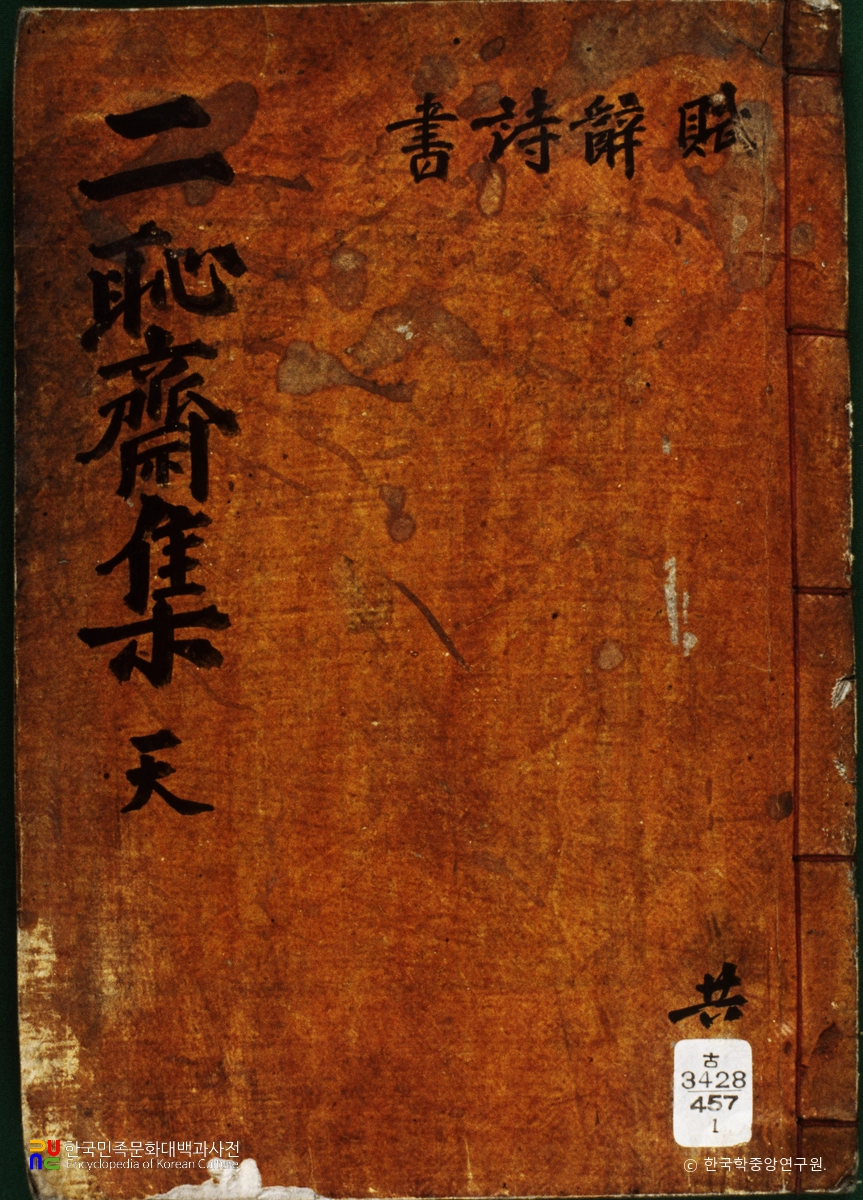 賦辭詩書
二恥齋集 天
共
古
3428
457
1
한국민족문화대백과사전
Encyclopedia of Korean Culture
© 한국학중앙연구원.